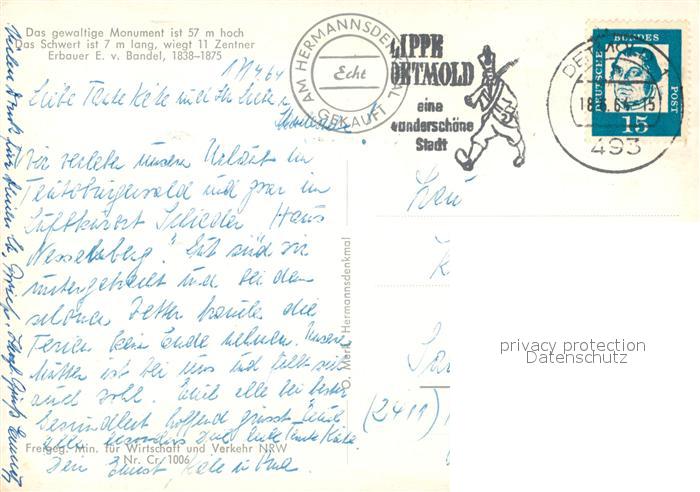 Das gewaltige Monument ist 57 m hoch
Das Schwert ist 7 m lang, wiegt 11 Zentner
Erbauer E. v. Bandel, 1838-1875
AM HERMANNSDENKMAL
Echt
GEKAUFT
LIPPE
DETMOLD
eine
wunderschöne
Stadt
DETMOLD 1
18.
15
493
DEUTSCHE BUNDESPOST
15
Liebe Tante Käte und Ihr Lieben
Wir verleben unseren Urlaub im
Teutoburgerwald und zwar im
Luftkurort Schieder Haus
Nesselberg". Gut sind wir
untergebracht und bei dem
schönen Wetter könnte die
Ferien kein Ende nehmen. Unsere
Mutter ist bei uns und fühlt sich
auch wohl. Euch alle bei bester
Gesundheit hoffend grüsst Euch
alle besonders Dich liebe Tante Käte
Dein Ernst, Käte und
Vielen Dank für Deinen lb. Brief.
Frau
(2411)
O. Merk, Hermannsdenkmal
Freigeg. Min. für Wirtschaft und Verkehr NRW
Nr. Cr/1006
privacy protection
Datenschutz